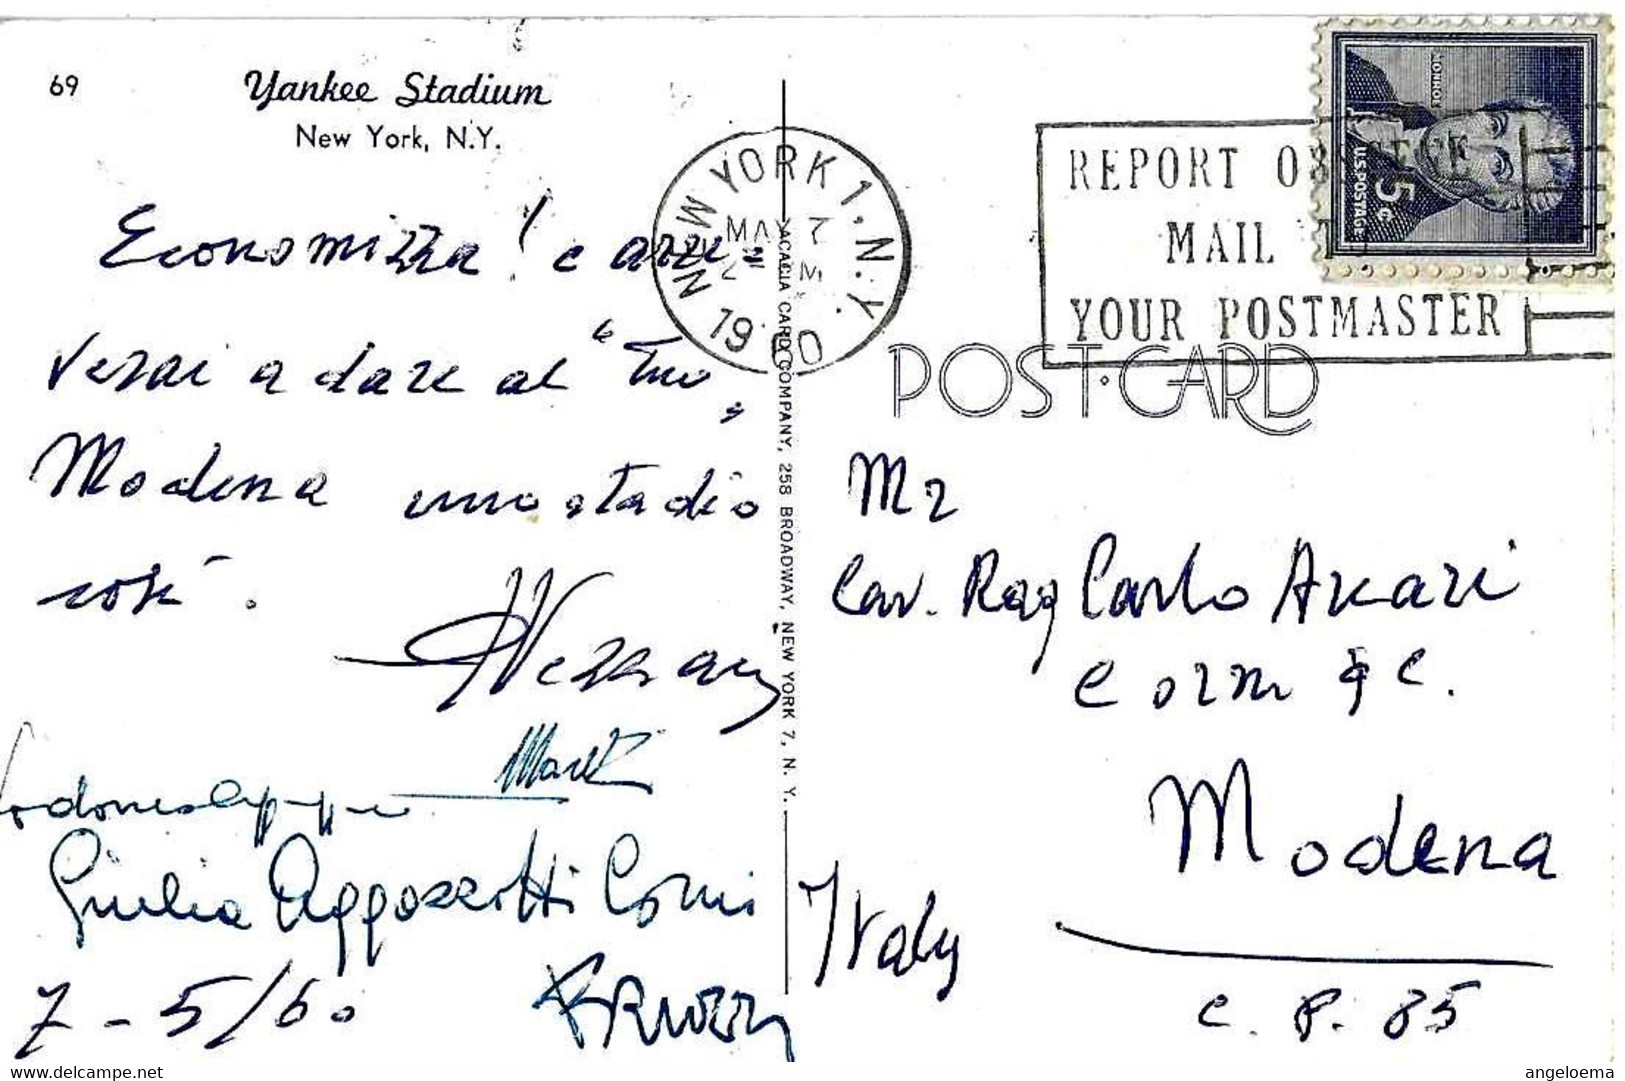 69
Yankee Stadium
New York, N.Y.
Economizza! e arri=
verai a dare al "tuo"
Modena uno stadio
così.
Giulia Aggazzotti Coni
7-5/60
ACACIA CARD COMPANY, 258 BROADWAY, NEW YORK 7, N. Y.
NEW YORK 1, N.Y.
MAY 7
PM
1960
REPORT OBSCENE
MAIL T
YOUR POSTMASTER
MONROE
U.S. POSTAGE
5¢
POST·CARD
Mr
Cav. Rag Carlo Accari
Corm & C.
Modena
Italy
C. P. 85
69
angeloema